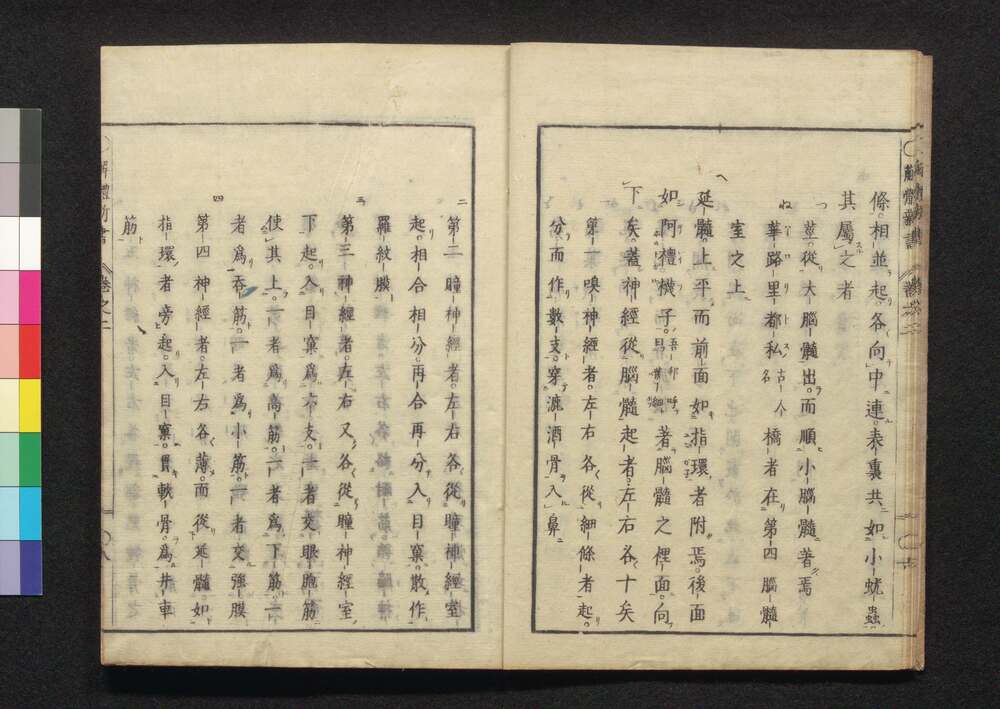 條相並起各向中連表裏共如小蚘蟲
其屬之者
つ 莖從大腦髓出而順小腦髓著焉
ね 華路里都私 古人名 橋者在第四腦髓
室之上
延髓上平而前面如指環者附焉後面
如阿禮機子 著腦髓之裡面向
下矣蓋神經從腦髓起者左右各十矣
第一嗅神經者左右各從細條者起
分而作數支穿漉酒骨入鼻
解體新書 卷之二
二 第二瞳神經者左右各從瞳神經室
起相合相分再合再分入目窠散作
羅紋膜
三 第三神經者左右又各從瞳神經室
下起入目窠爲六支一者交眼胞筋
使其上一者爲高筋一者爲下筋一
者爲吞筋一者爲小筋一者交強膜
四 第四神經者左右各薄而從延髓如
指環者旁起入目窠貫軟骨爲井車
筋
解體新書 卷之二 八